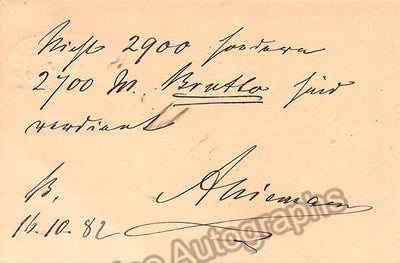 Nicht 2900 sondern
2700 M. Brutto sind
verdient
B.
ANiemann
16.10.82
Autographs